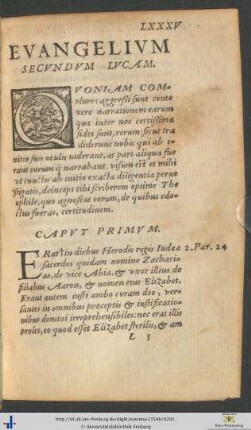 LXXXV
EVANGELIVM
SECVNDVM LVCAM.
QVONIAM COM
plures aggressi sunt conte
xere narrationem earum
que inter nos certissima
fidei sunt, rerum: sicut tra
diderunt nobis qui ab i-
nitio suis oculis viderant, ac pars aliqua fue
rant eorum quæ narrabant: visum est et mihi
vt cunctis ab initio exacta diligentia perue
stigatis, deinceps tibi scriberem optime The
ophile, quo agnoscas eorum, de quibus edo-
ctus fueras, certitudinem.
CAPVT PRIMVM.
ERat in diebus Herodis regis Iudææ 2.Par. 24
sacerdos quidam nomine Zachari-
as, de vice Abia, & vxor illius de
filiabus Aaron, & nomen eius Elizabet.
Erant autem iusti ambo coram deo, ver-
santes in omnibus præceptis & iustificatio-
nibus domini irreprehensibiles: nec erat illis
proles, eo quod esset Elizabet sterilis, & am
l 5
© Universitätsbibliothek Freiburg